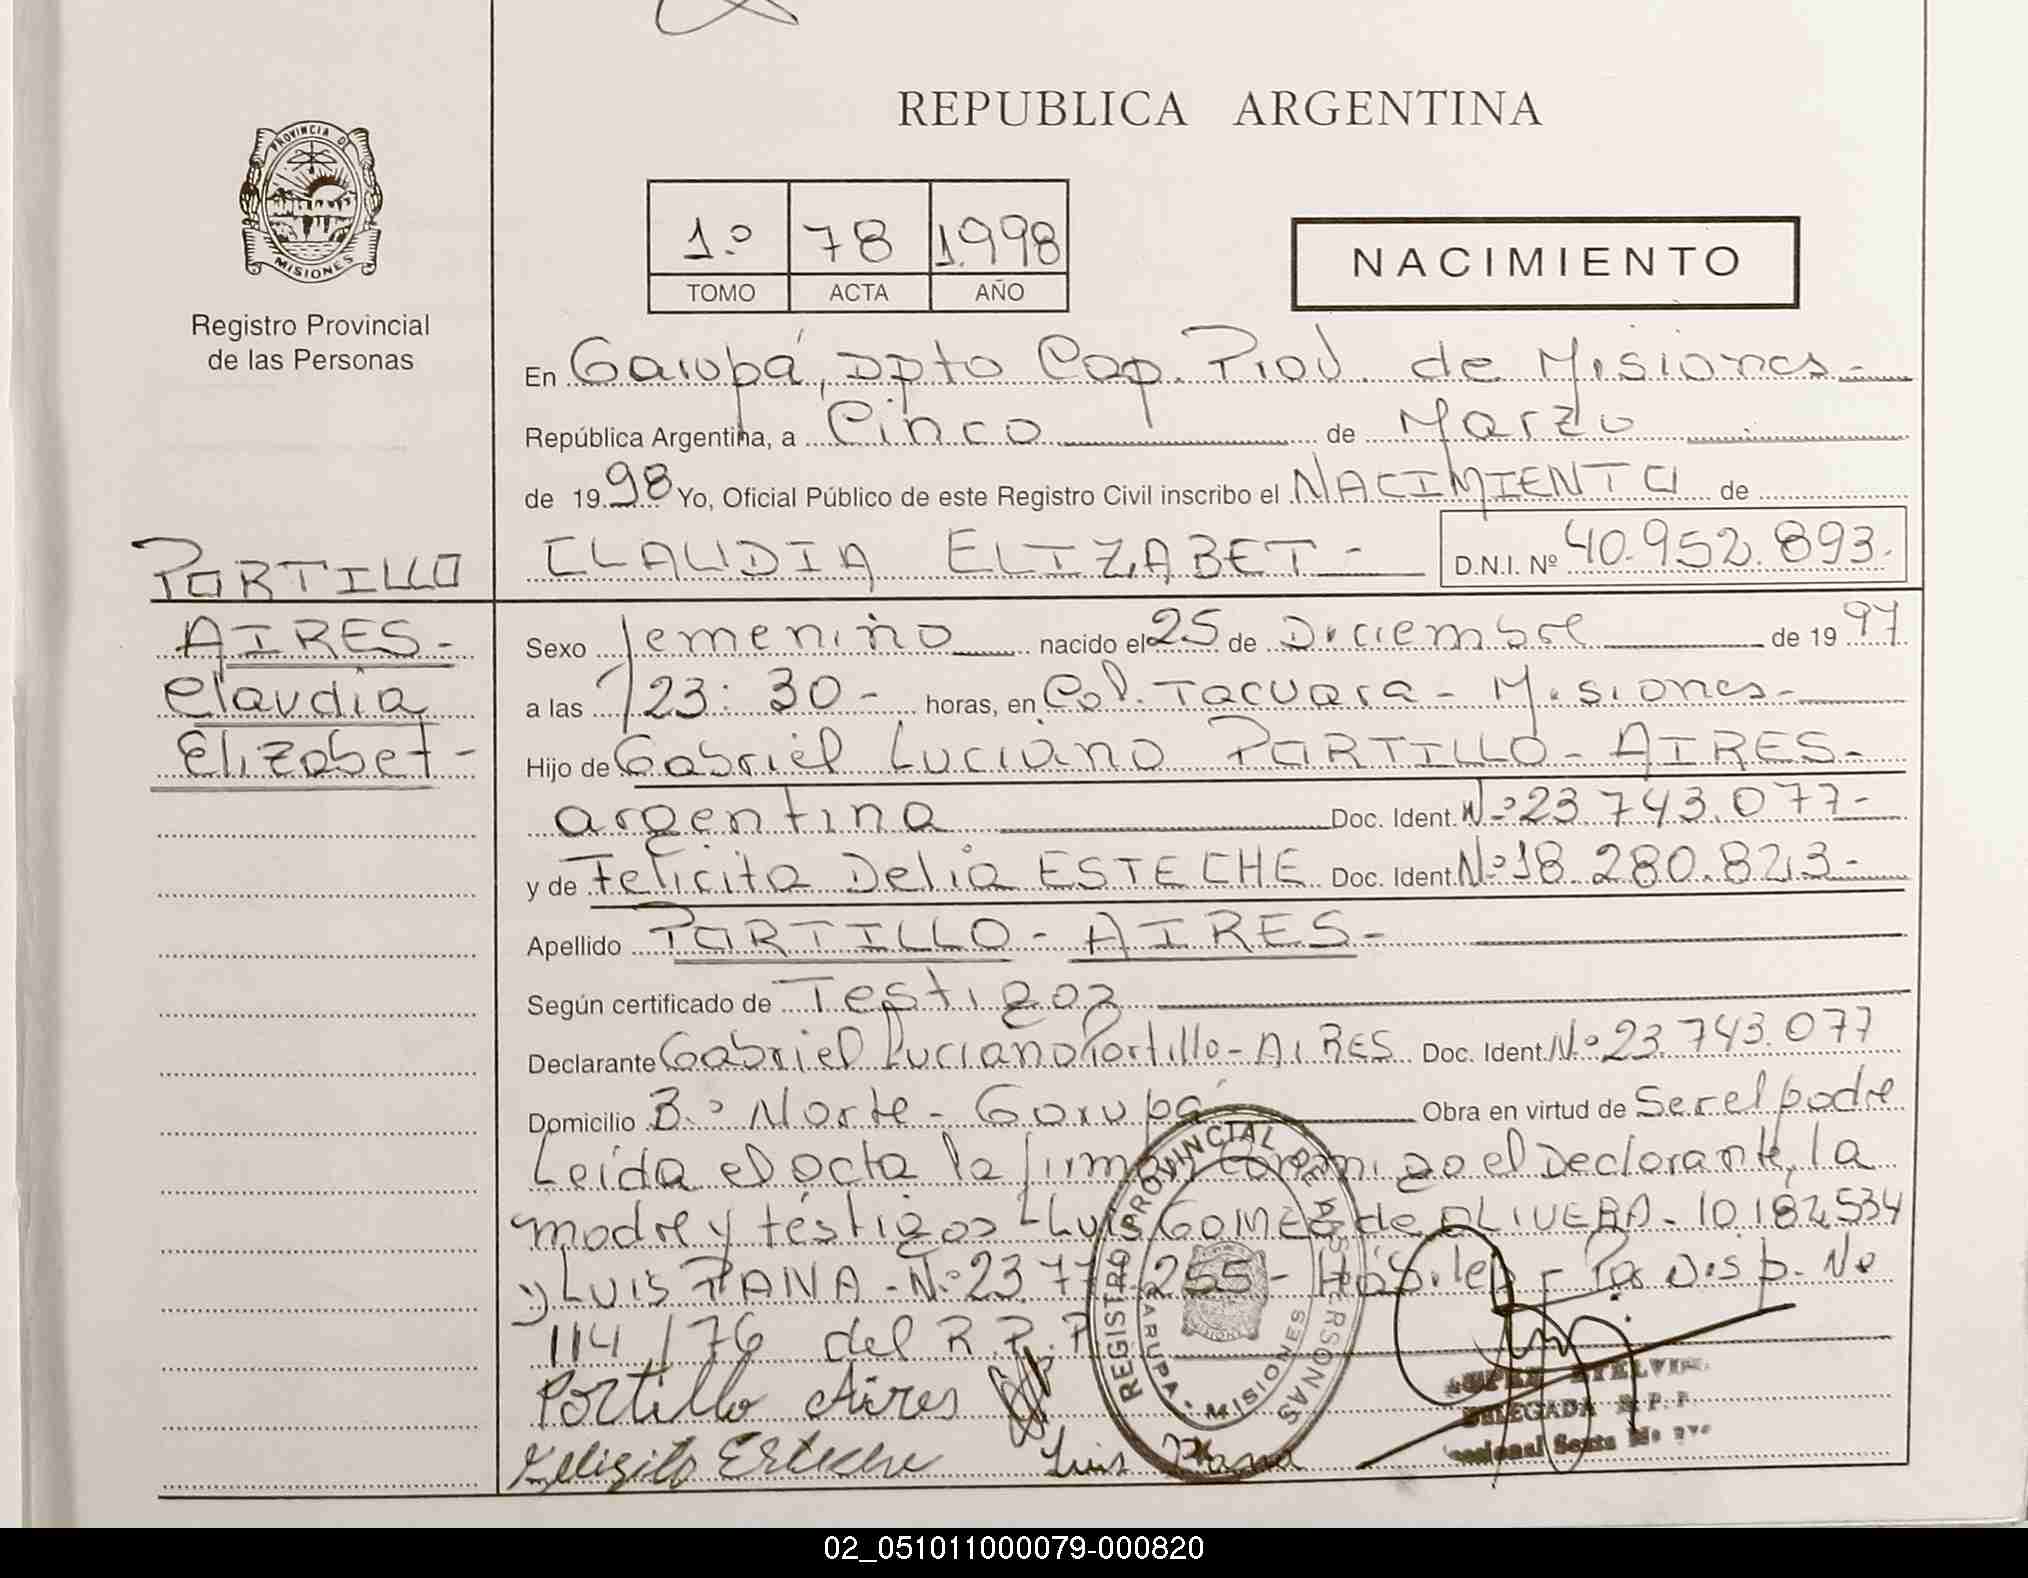 REPUBLICA ARGENTINA
PROVINCIA DE
MISIONES
Registro Provincial
de las Personas
1.º 78 1.998
TOMO ACTA AÑO
NACIMIENTO
En Garupá, Dpto Cap. Prov. de Misiones-
República Argentina, a Cinco de Marzo
de 1998 Yo, Oficial Público de este Registro Civil inscribo el NACIMIENTO de
CLAUDIA ELIZABET - D.N.I. Nº 40.952.893.
PORTILLO
AIRES-
Claudia
Elizabet-
Sexo femenino nacido el 25 de Diciembre de 1997
a las 23:30- horas, en Col. Tacuara - Misiones-
Hijo de Gabriel Luciano PORTILLO-AIRES-
argentina Doc. Ident. Nº 23.743.077-
y de Felicita Delia ESTECHE Doc. Ident. Nº 18.280.823-
Apellido PORTILLO - AIRES-
Según certificado de Testigos
Declarante Gabriel Luciano Portillo-AIRES Doc. Ident. Nº 23.743.077
Domicilio B.º Norte - Garupá Obra en virtud de Ser el padre
Leída el acta la firman conmigo el Declarante, la
madre y testigos Luis GOMEZ de OLIVERA- 10.182.534
y LUIS PANA-N.º 23.77 .255- Hábiles- Por Disp. No
114/76 del R.P.P
Portillo Aires
Esteche Luis Pana
REGISTRO PROVINCIAL DE LAS PERSONAS
GARUPA - MISIONES
DELEGADA R.P.P
02_051011000079-000820